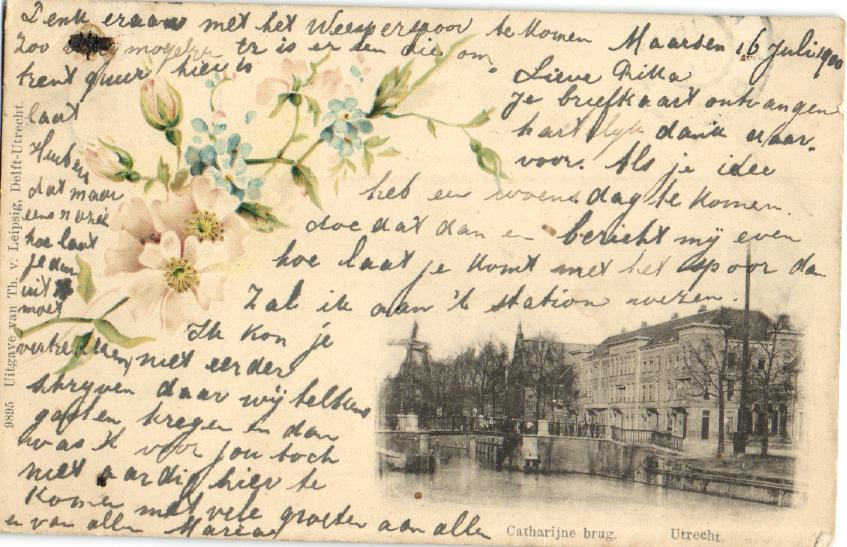 Denk eraan met het Weesperspoor te komen
Zoo mogelyk tr is er een die om
trent quur hier is
laat
Huber
dat maar
eens
hoe laat
je den
uit
moet
vertrekken
Maarsen 16 Juli 1900
Lieve Rikka
Je briefkaart ontvangen
hartelyk dank daar
voor. Als je idee
heb een woensdag te komen.
doe dat dan en bericht mij even
hoe laat je komt met het spoor dan
Zal ik aan 't station wezen.
Ik kon je
niet eerder
schryven daar wij telkens
gasten kregen en dan
was 't voor jou toch
niet aardig hier te
komen met vele groeten aan allen
en van allen Maria
9895 Uitgave van Th. v. Leipsig, Delft-Utrecht.
Catharijne brug. Utrecht.